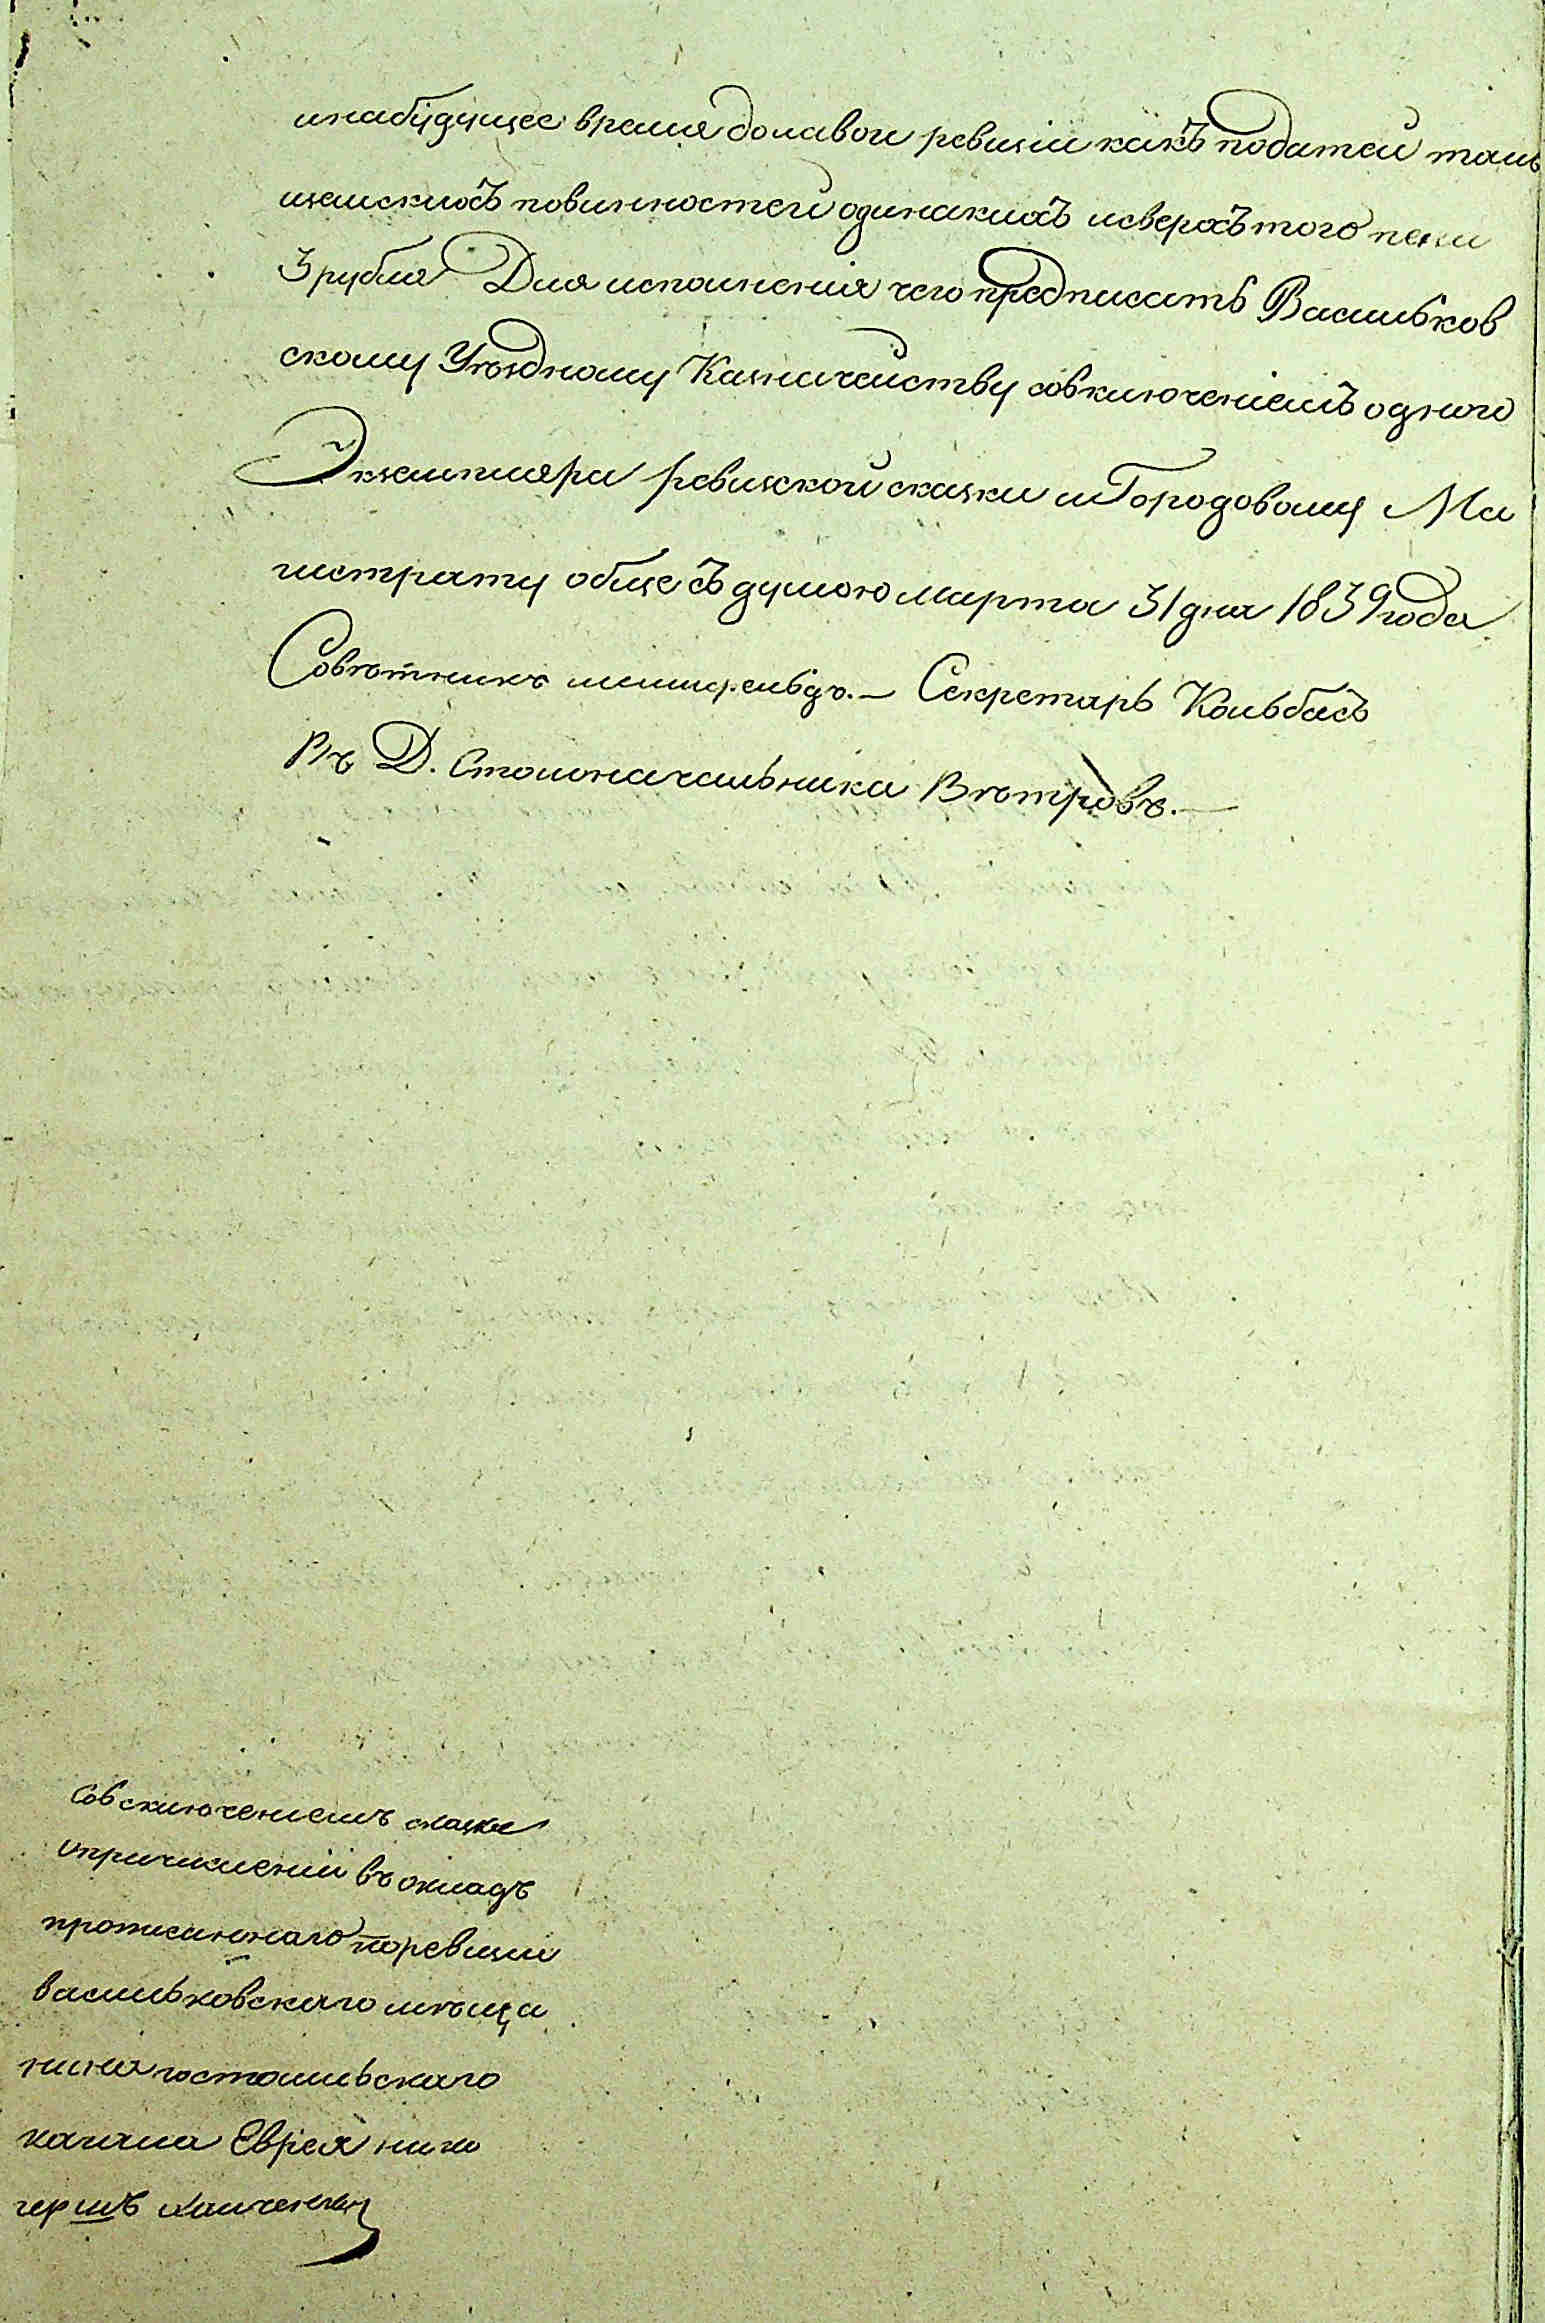 инабудущее время доновой ревизіи какъ податей такъ
земскихъ повинностей одинакихъ исверхъ того пени
3 рубля Для исполненія чего предписать Васильков
скому Уѣздному Казначейству совключеніемъ одного
Экземпляра ревизской сказки иГородовому Ма
гистрату обще съ думою марта 31 дня 1839 года
Совѣтникъ Секретарь Кольбасъ
Въ Д. Столоначальника Вѣтровъ.—
сказки
опричисленіи въ окладъ
прописаннаго поревизіи
васильковскаго мѣща
нина
кагала Еврея